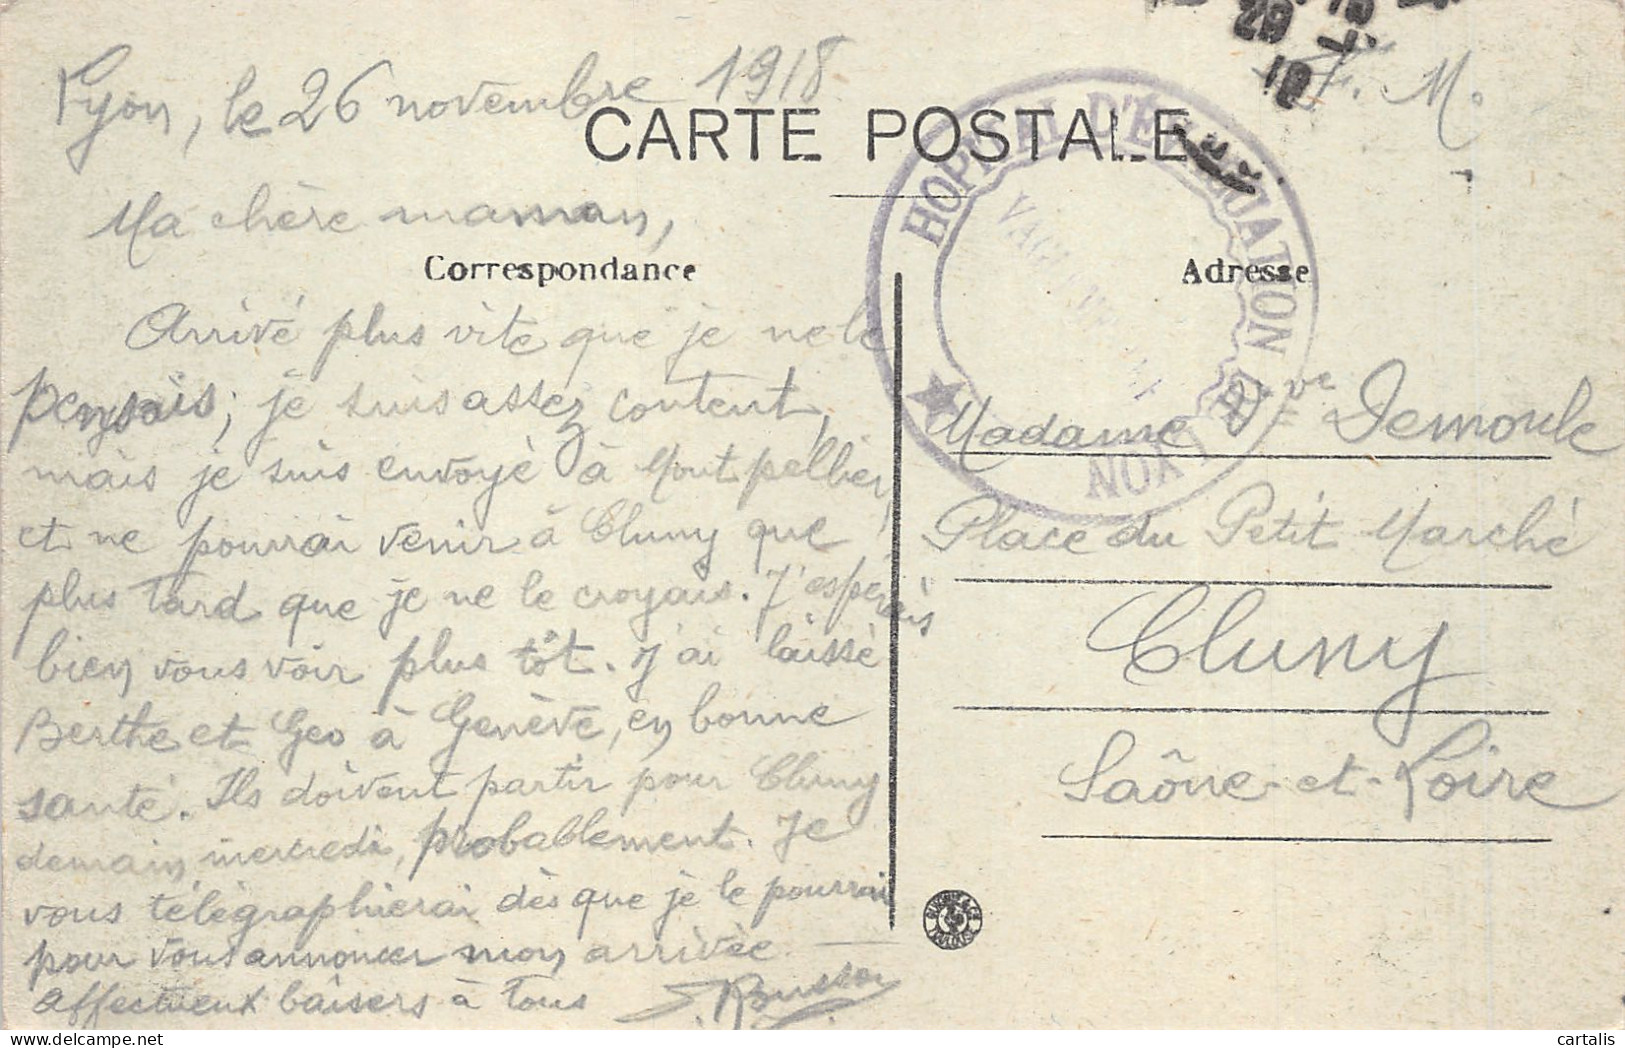 Lyon, le 26 novembre 1918
F. M.
CARTE POSTALE
HOPITAL D'ÉVACUATION DE LYON
Ma chère maman,
Correspondance
Adresse
Arrivé plus vite que je ne le
pensais; je suis assez content,
mais je suis envoyé à Montpellier,
et ne pourrai venir à Cluny que
plus tard que je ne le croyais. J'espérais
bien vous voir plus tôt. J'ai laissé
Berthe et Geo à Genève, en bonne
santé. Ils doivent partir pour Cluny
demain mercredi, probablement. Je
vous télégraphierai dès que je le pourrai
pour vous annoncer mon arrivée.
Affectueux baisers à tous
Madame Vve Demoule
Place du Petit Marché
Cluny
Saône-et-Loire
cartalis